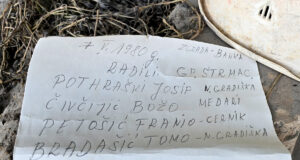 7. V. 1980 g. ZGRADA-BANKE
RADILI GP. STRMAC,
POTHRAŠKI JOSIP N. GRADIŠKA
ČIVČIJIĆ BOŽO MEDARI
PETOŠIĆ FRANJO-CERNIK
BRADAŠIĆ TOMO-N. GRADIŠKA